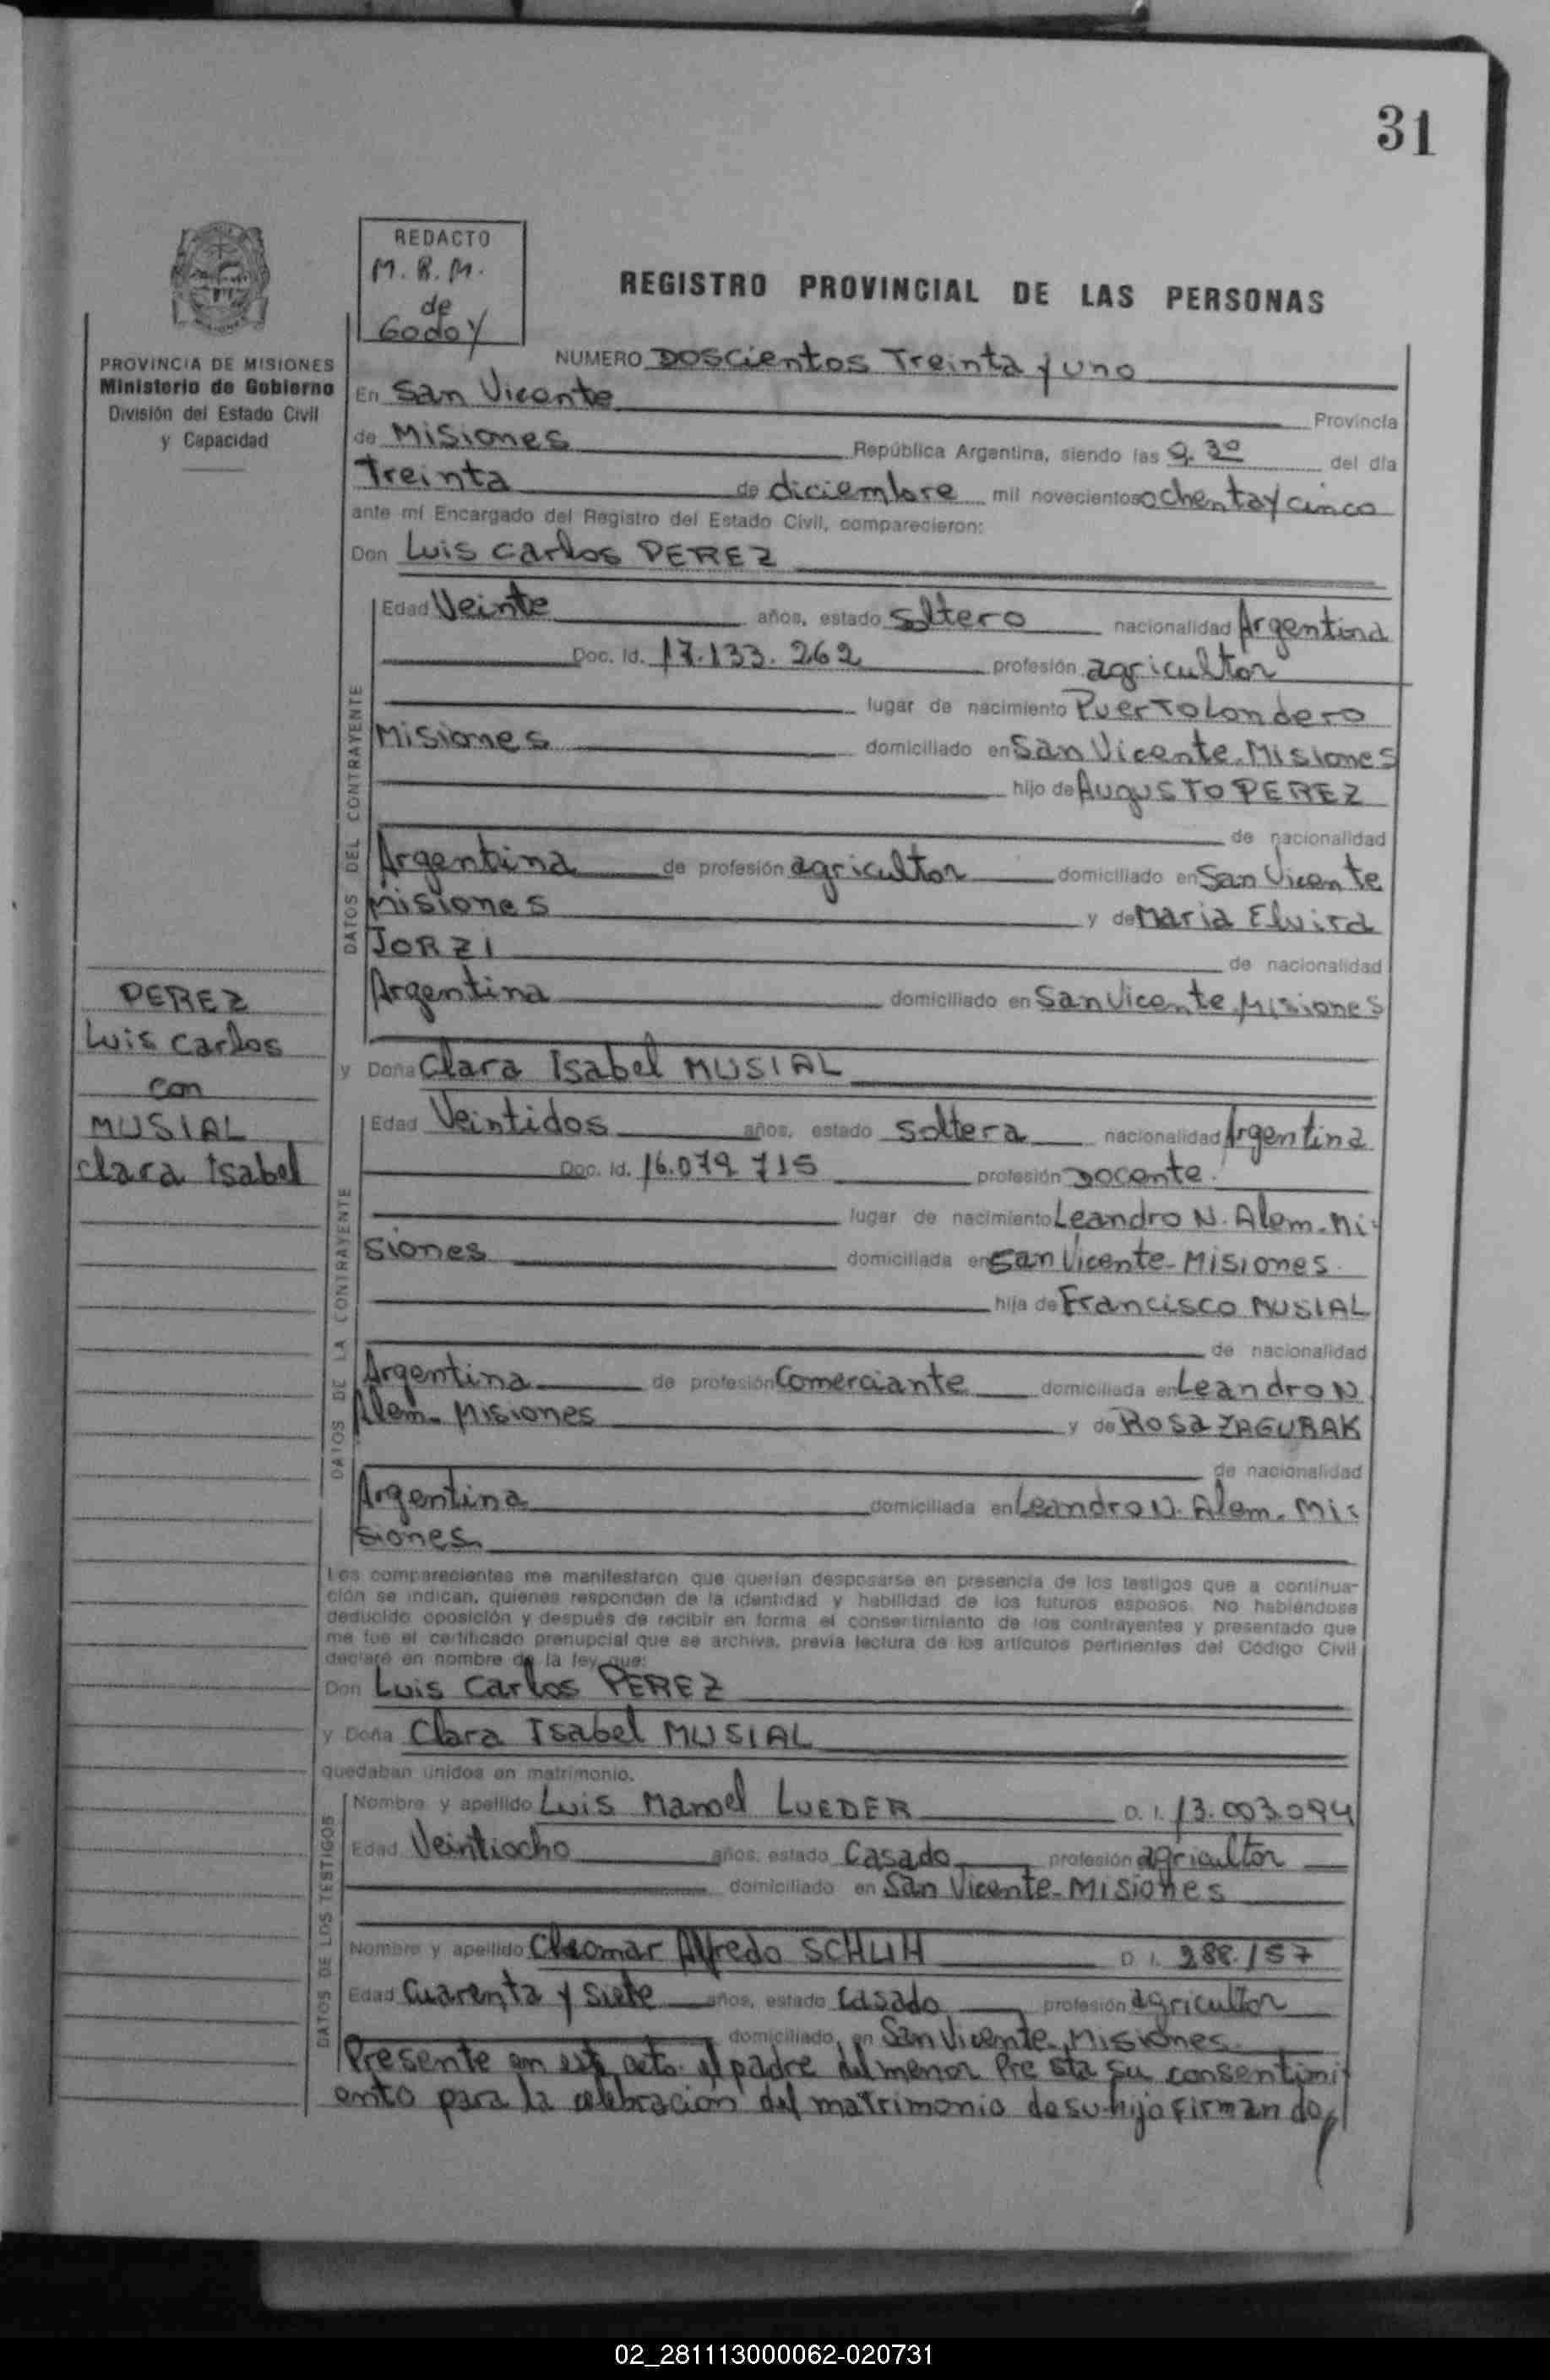 31
REDACTO
M. R. M.
de
Godoy
REGISTRO PROVINCIAL DE LAS PERSONAS
PROVINCIA DE MISIONES
Ministerio de Gobierno
División del Estado Civil
y Capacidad
NUMERO Doscientos Treinta y uno
En San Vicente Provincia
de Misiones República Argentina, siendo las 9.30 del día
Treinta de diciembre mil novecientos ochenta y cinco
ante mí Encargado del Registro del Estado Civil, comparecieron:
Don Luis Carlos PEREZ
DATOS DEL CONTRAYENTE
Edad Veinte años, estado soltero nacionalidad Argentina
Doc. Id. 17.133.262 profesión agricultor
lugar de nacimiento Puerto Londero
Misiones domiciliado en San Vicente-Misiones
hijo de Augusto PEREZ
de nacionalidad
Argentina de profesión agricultor domiciliado en San Vicente
Misiones y de Maria Elvira
JORZI de nacionalidad
Argentina domiciliado en San Vicente, Misiones
PEREZ
Luis Carlos
con
MUSIAL
Clara Isabel
y Doña Clara Isabel MUSIAL
DATOS DE LA CONTRAYENTE
Edad Veintidos años, estado soltera nacionalidad Argentina
Doc. Id. 16.079 715 profesión Docente
lugar de nacimiento Leandro N. Alem-Mi-
siones domiciliada en San Vicente-Misiones
hija de Francisco MUSIAL
de nacionalidad
Argentina de profesión Comerciante domiciliada en Leandro N
Alem-Misiones y de Rosa ZAGURAK
de nacionalidad
Argentina domiciliada en Leandro N. Alem-Mi-
siones
Los comparecientes me manifestaron que querían desposarse en presencia de los testigos que a continua-
ción se indican, quienes responden de la identidad y habilidad de los futuros esposos. No habiéndose
deducido oposición y después de recibir en forma el consentimiento de los contrayentes y presentado que
me fue el certificado prenupcial que se archiva, previa lectura de los artículos pertinentes del Código Civil
declaré en nombre de la ley que:
Don Luis Carlos PEREZ
y Doña Clara Isabel MUSIAL
quedaban unidos en matrimonio.
DATOS DE LOS TESTIGOS
Nombre y apellido Luis Manoel LUEDER D. I. 13.003.094
Edad Veintiocho años, estado Casado profesión agricultor
domiciliado en San Vicente-Misiones
Nombre y apellido Alfredo SCHUH D. I. 288.157
Edad Cuarenta y Siete años, estado casado profesión agricultor
domiciliado en San Vicente, Misiones
Presente en este acto el padre del menor Presta su consentimi
ento para la celebración del matrimonio de su hijo firmando,
02_281113000062-020731